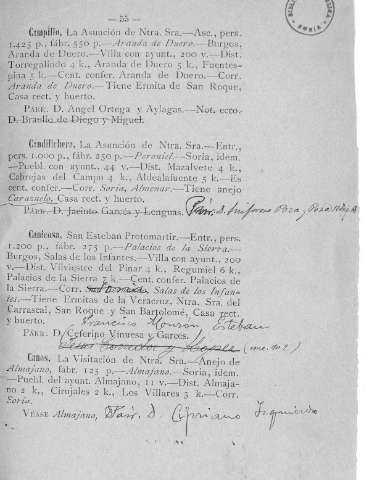 — 53 —
Campillo, La Asunción de Ntra. Sra.—Asc., pers.
1.425 p., fábr. 550 p.—Aranda de Duero.—Burgos,
Aranda de Duero.—Villa con ayunt., 200 v.—Dist.
Torregalindo 4 k., Aranda de Duero 5 k., Fuentes-
pina 5 k.—Cent. confer. Aranda de Duero.—Corr.
Aranda de Duero.—Tiene Ermita de San Roque,
Casa rect. y huerto.
PÁRR. D. Angel Ortega y Aylagas.—Not. ecco.
D. Braulio de Diego y Miguel.
Candilichera, La Asunción de Ntra. Sra.—Entr.,
pers. 1.000 p., fábr. 250 p.—Peroniel.—Soria, idem.
—Puebl. con ayunt., 44 v.—Dist. Mazalvete 4 k.,
Cabrejas del Campo 4 k., Aldealafuente 5 k.—Es
cent. confer.—Corr. Soria, Almenar.—Tiene anejo
Carazuelo, Casa rect. y huerto.
PÁRR. D. Jacinto Garcés y Lenguas. Párr. D.
Canicosa, San Esteban Protomartir.—Entr., pers.
1.200 p., fábr. 275 p.—Palacios de la Sierra.—
Burgos, Salas de los Infantes.—Villa con ayunt., 200
v.—Dist. Vilviestre del Pinar 4 k., Regumiel 6 k.,
Palacios de la Sierra 7 k.—Cent. confer. Palacios de
la Sierra.—Corr. Salas de los Infan-
tes.—Tiene Ermitas de la Veracruz, Ntra. Sra. del
Carrascal, San Roque y San Bartolomé, Casa rect.
y huerto.
Francisco Esteban
PÁRR. D. Ceferino Ximresa y Garcés.
Canos, La Visitación de Ntra. Sra.—Anejo de
Almajano, fábr. 125 p.—Almajano.—Soria, idem.
—Puebl. del ayunt. Almajano, 11 v.—Dist. Almaja-
no 2 k., Cirujales 2 k., Los Villares 3 k.—Corr.
Soria.
VÉASE Almajano, Párr. D. Cipriano Izquierdo